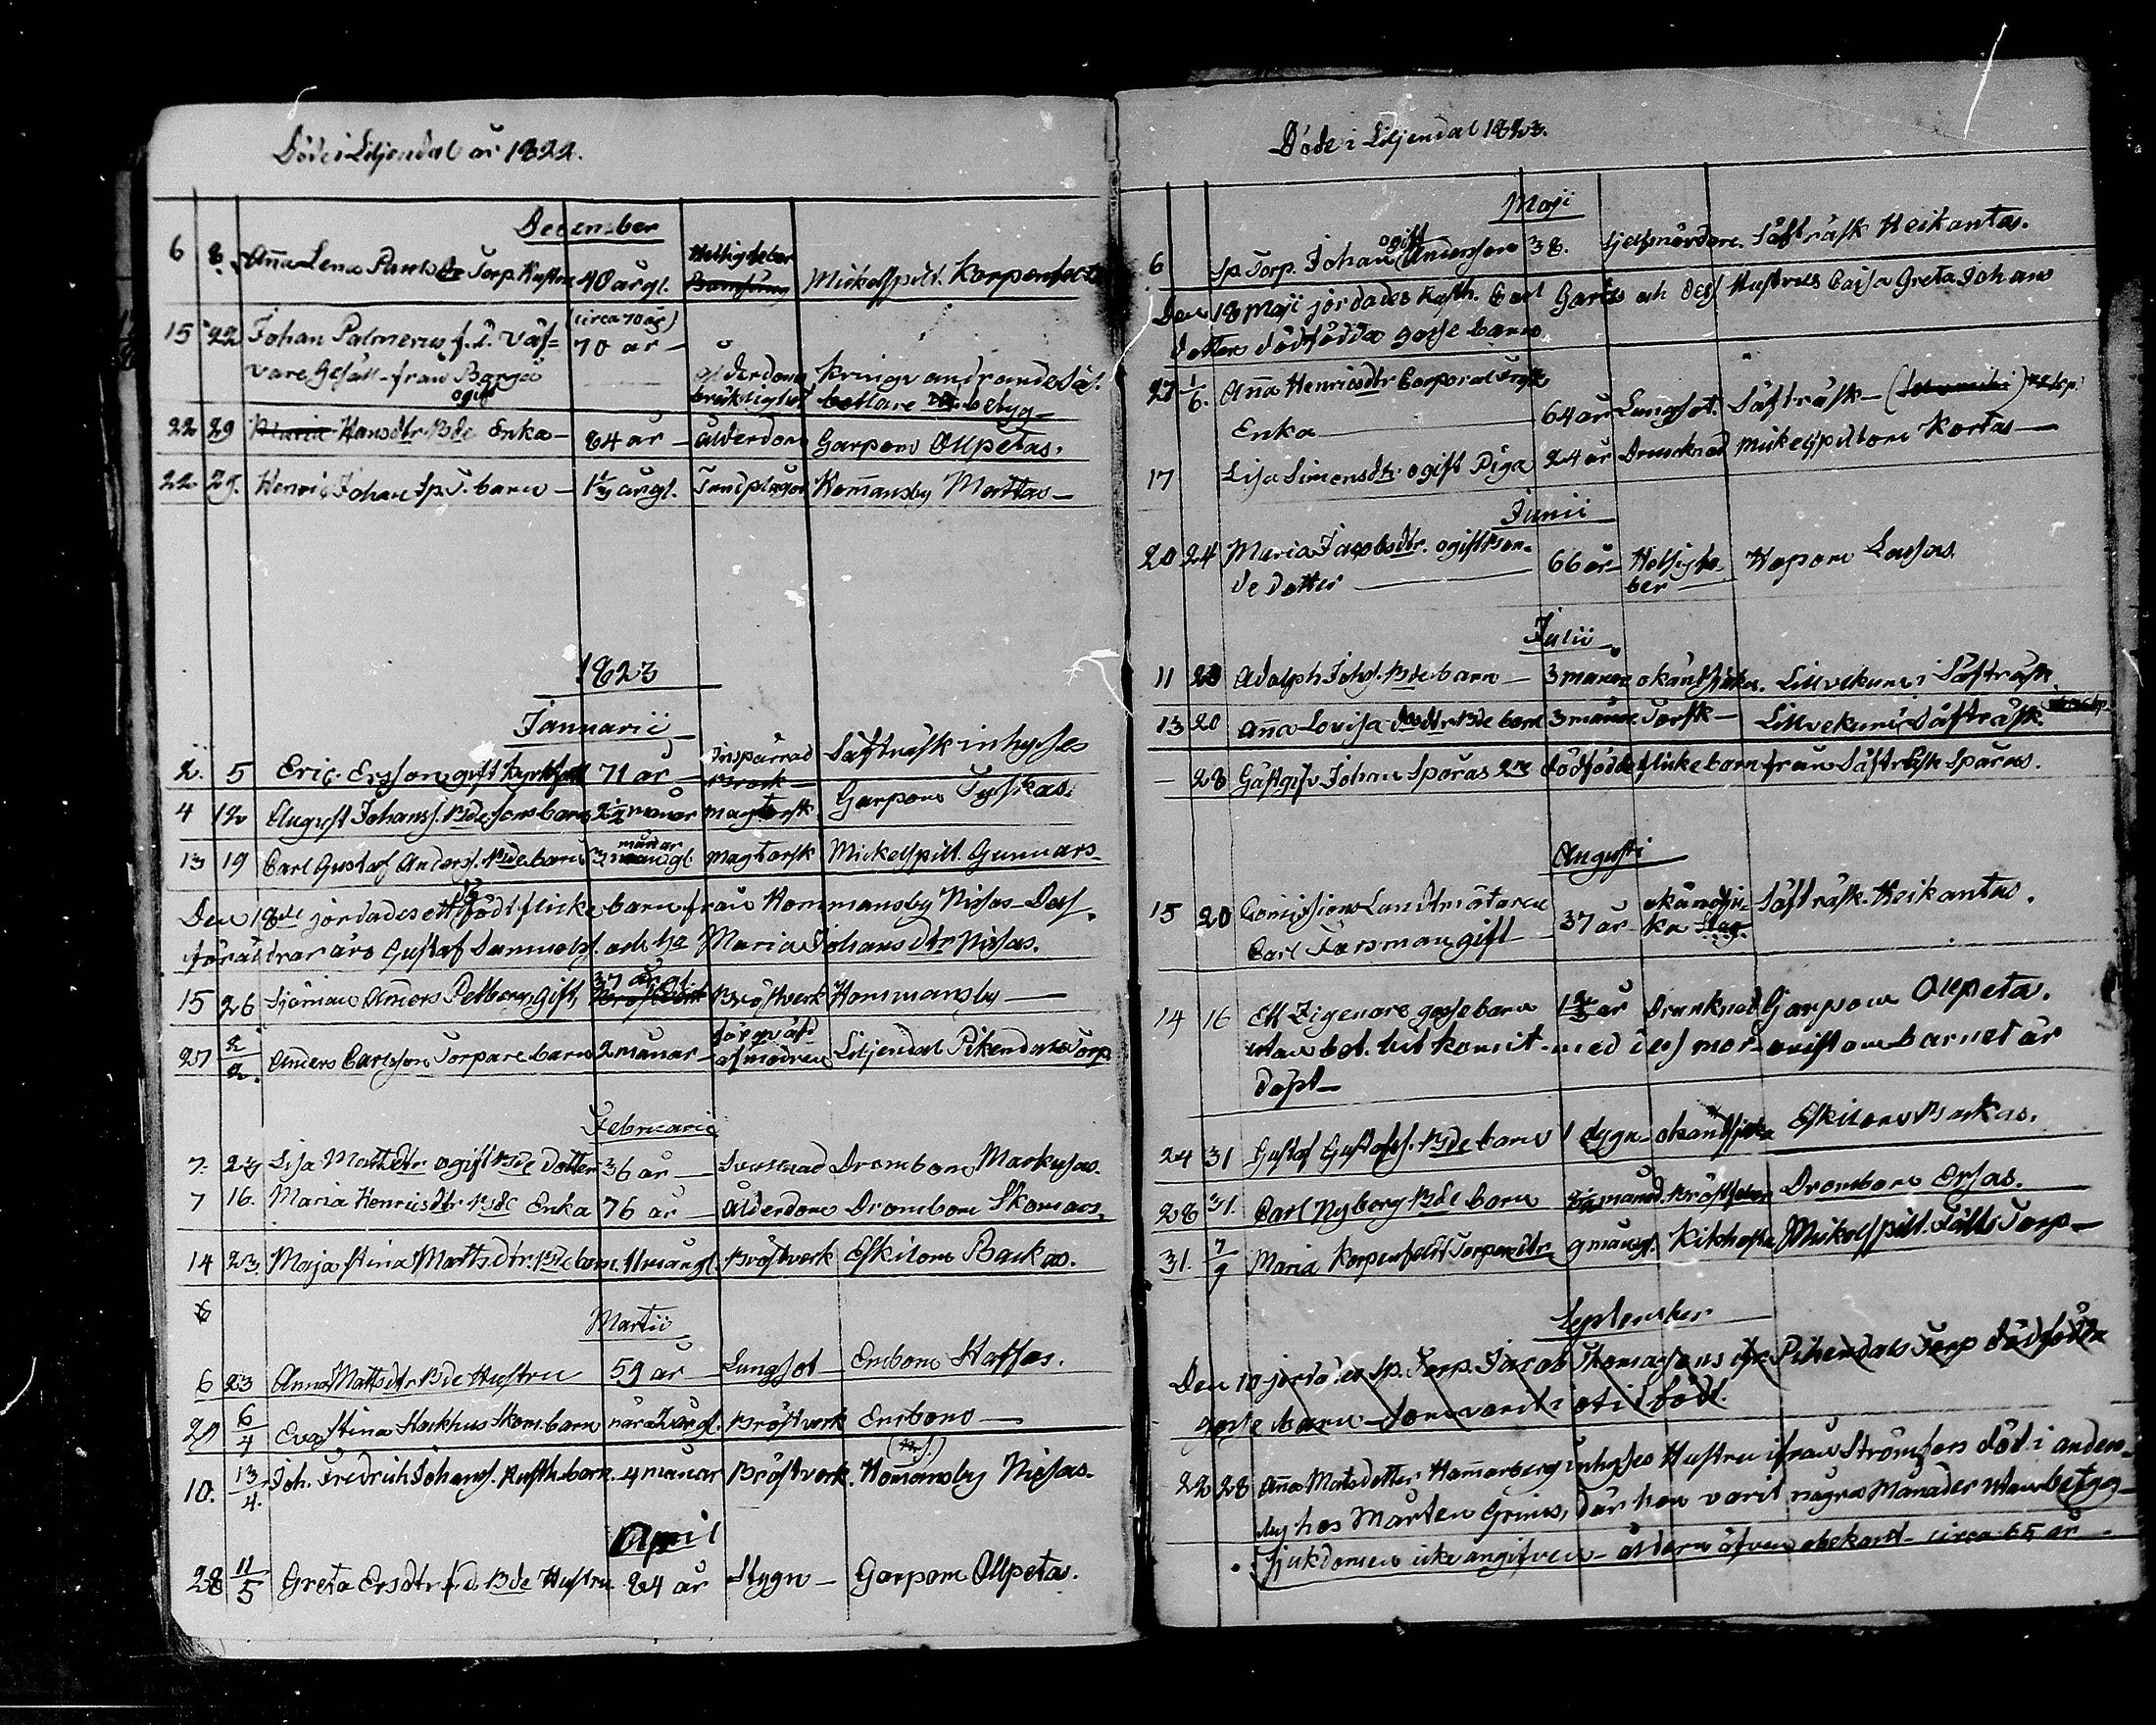 Döde i Liljendal år 1822.
December
6 8. Aña Lena Paulsdr Torp. Hustru 40 år gl. Hettigfeber Mickelspilt. Karpenfelt
15 22 Johan Palmerus f. d. Väf= (circa 70 år)
vare Gesäll från Borgå 70 år Ålderdoms kringvandrande
ogift bräklighet bettlare
22 29 Maria Hansdtr Bde Enka 84 år Ålderdom Garpom Ollpetas.
22 29. Henric Johan Sp. T. barn 1 1/3 år gl. Tandplågor Kom̃ansby Mattas
1823
Januarii
2. 5 Eric Ersson gift 71 år Inspärrad Bråck Säfträsk inhyses
4 12 August Johanss. Bdesons barn 2 1/2 månar magtorsk Garpom Tyskas.
13 19 Carl Gustaf Anderss. Bde barn 3 månar gl. magtorsk Mickelspilt. Gunnars
Den 18de jordades ett dödfödt flicke barn från Hommansby Nissas Dess
föräldrar äro Gustaf Samuelss. och ha Maria Johansdtr Nissas.
15 26 Sjöman Anders Petberg, Gift, 37 år gl. Bröstverk Hommansby
27 2/2. Anders Carlsson Torpare barn 2 månar förqväfd af modren Liljendal Pikendals Torp
Februarii
7. 24 Lisa Mattsdtr ogift Bde Dotter 36 år Svullnad Drombom Markusas.
7 16. Maria Henricsdtr Bde Enka 76 år Ålderdom Drombom Skomars.
14 23. Maja Stina Mattsdtr. Bde barn. 11 mån gl. Bröstverk Eskilom Backas.
6
Martii
6 23 Anna Mattsdtr Bde Hustru 59 år Lungsot Embom Staffas.
29 6/4 Eva Stina Stackhus Skom. barn nära 2 år gl. Bröstverk Embom
10. 13/4. Joh. Fredrich Johanss. Rusth. barn. 4 månar Bröstverk. Hom̃ansby Nissas.
April
28 11/5 Greta Ersdtr f. d. Bde Hustru 84 år Stygn Garpom Ollpeta.
Döde i Liljendal 1823.
Maji
6 Sp. Torp. Johan Andersson ogift 38. Sjelfmördare. Säfträsk Heikantas.
Den 18 Maji jordades Rusth. Carl Garts och dess Hustrus Caisa Greta Johans
dotters dödfödda gosse barn
27 1/6. Aña Henricsdtr Corporal
Enka 64 år Lungsot. Säfträsk
17 Lisa Simonsdtr ogift Piga 24 år Drunknad Mickelspiltom Kortas
Junii
20 24 Maria Jacobsdtr. ogift Bon=
de Dotter 66 år Hetsig fe=
ber Hopom Lassas.
Julii
11 20 Adolph Johs. Bde barn 3 månar okänd sjukd. Lillvekuni i Säfträsk
13 20 Aña Lovisa dtr Bde barn 3 månar Torsk Lillvekuni i Säfträsk
28 Gästgifv. Johan Sparas 2ne dödfödde flicke barn från Säfträsk Sparas.
Augusti
15 20 Comissions Landtmätaren okänd sju=
Carl Forsman gift 37 år ka Slag Säfträsk. Heikantas.
14 16 Ett Zigenare gosse barn 1 2/3 år Drunknad Garpom Ollpeta.
utan bet. hit kom̃it med dess mor ovist om barnet är
döpt
24 31 Gustaf Gustafss. Bde barn 1 dygn okänd sjuka Eskilom Backas.
28 31. Carl Nyberg Bde barn månad. Bröstfeber Drombom Ersas.
31. 7/9 Maria Karpenfeldt Torpare dtr 9 mån gl. Kikhosta Mickelspilt. Fälts Torp
September
Den 10 jordades Sp. Torp. Jacob Thomassons ifr. Pikendals Torp dödfödde
gosse barn som varit i otid född.
22 28 Aña Matsdotter Ham̃arberg inhyses Hustru ifrån Strömfors död i anders=
by hos Mårten Grims, där hon varit några Månader utan betyg
Sjukdomen icke angifven åldern äfven obekant circa 65 år